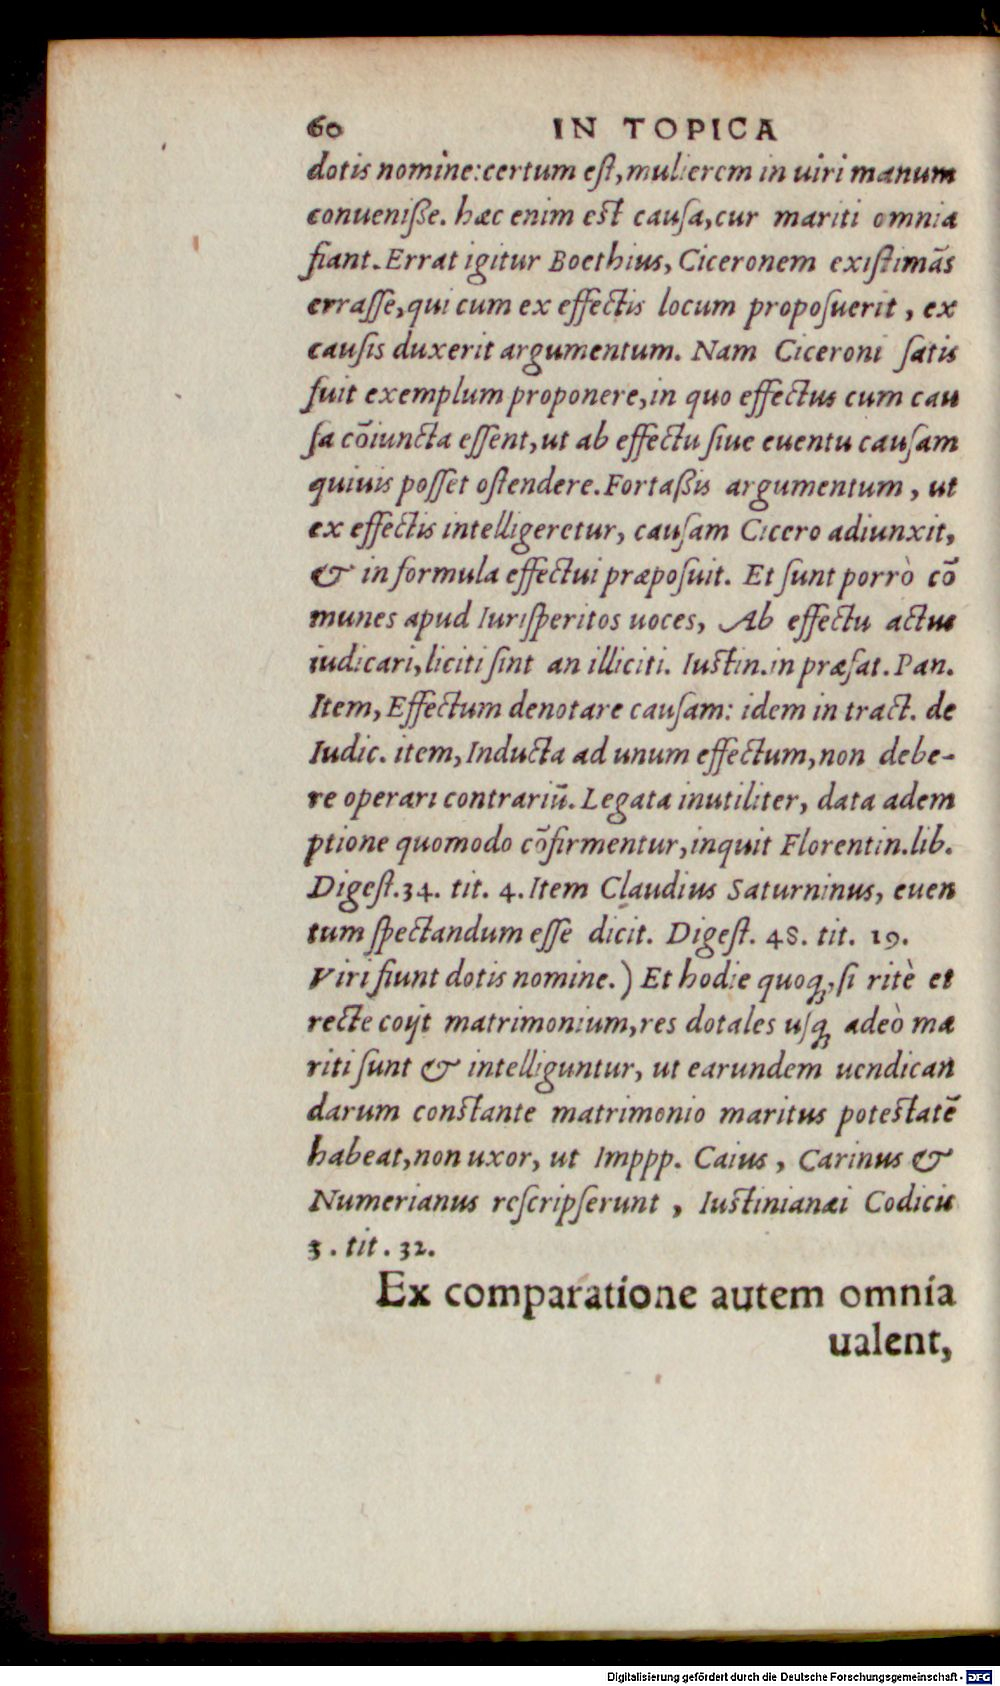 60 IN TOPICA
dotis nomine: certum eſt, mulierem in uiri manum
conueniſſe. hæc enim eſt cauſa, cur mariti omnia
fiant. Errat igitur Boethius, Ciceronem exiſtimãs
erraſſe, qui cum ex effectis locum propoſuerit, ex
cauſis duxerit argumentum. Nam Ciceroni ſatis
fuit exemplum proponere, in quo effectus cum cau
ſa cõiuncta eſſent, ut ab effectu ſiue euentu cauſam
quiuis poſſet oſtendere. Fortaßis argumentum, ut
ex effectis intelligeretur, cauſam Cicero adiunxit,
& in formula effectui præpoſuit. Et ſunt porrò cõ
munes apud Iuriſperitos uoces, Ab effectu actus
iudicari, liciti ſint an illiciti. Iuſtin. in præfat. Pan.
Item, Effectum denotare cauſam: idem in tract. de
Iudic. item, Inducta ad unum effectum, non debe-
re operari contrariũ. Legata inutiliter, data adem
ptione quomodo cõfirmentur, inquit Florentin. lib.
Digeſt. 34. tit. 4. Item Claudius Saturninus, euen
tum ſpectandum eſſe dicit. Digeſt. 48. tit. 19.
Viri fiunt dotis nomine.) Et hodie quoq;, ſi ritè et
recte coijt matrimonium, res dotales uſq; adeò ma
riti ſunt & intelliguntur, ut earundem uendican
darum conſtante matrimonio maritus poteſtatẽ
habeat, non uxor, ut Imppp. Caius, Carinus &
Numerianus reſcripſerunt, Iuſtinianæi Codicis
3. tit. 32.
Ex comparatione autem omnia
ualent,
Digitalisierung gefördert durch die Deutsche Forschungsgemeinschaft - DFG